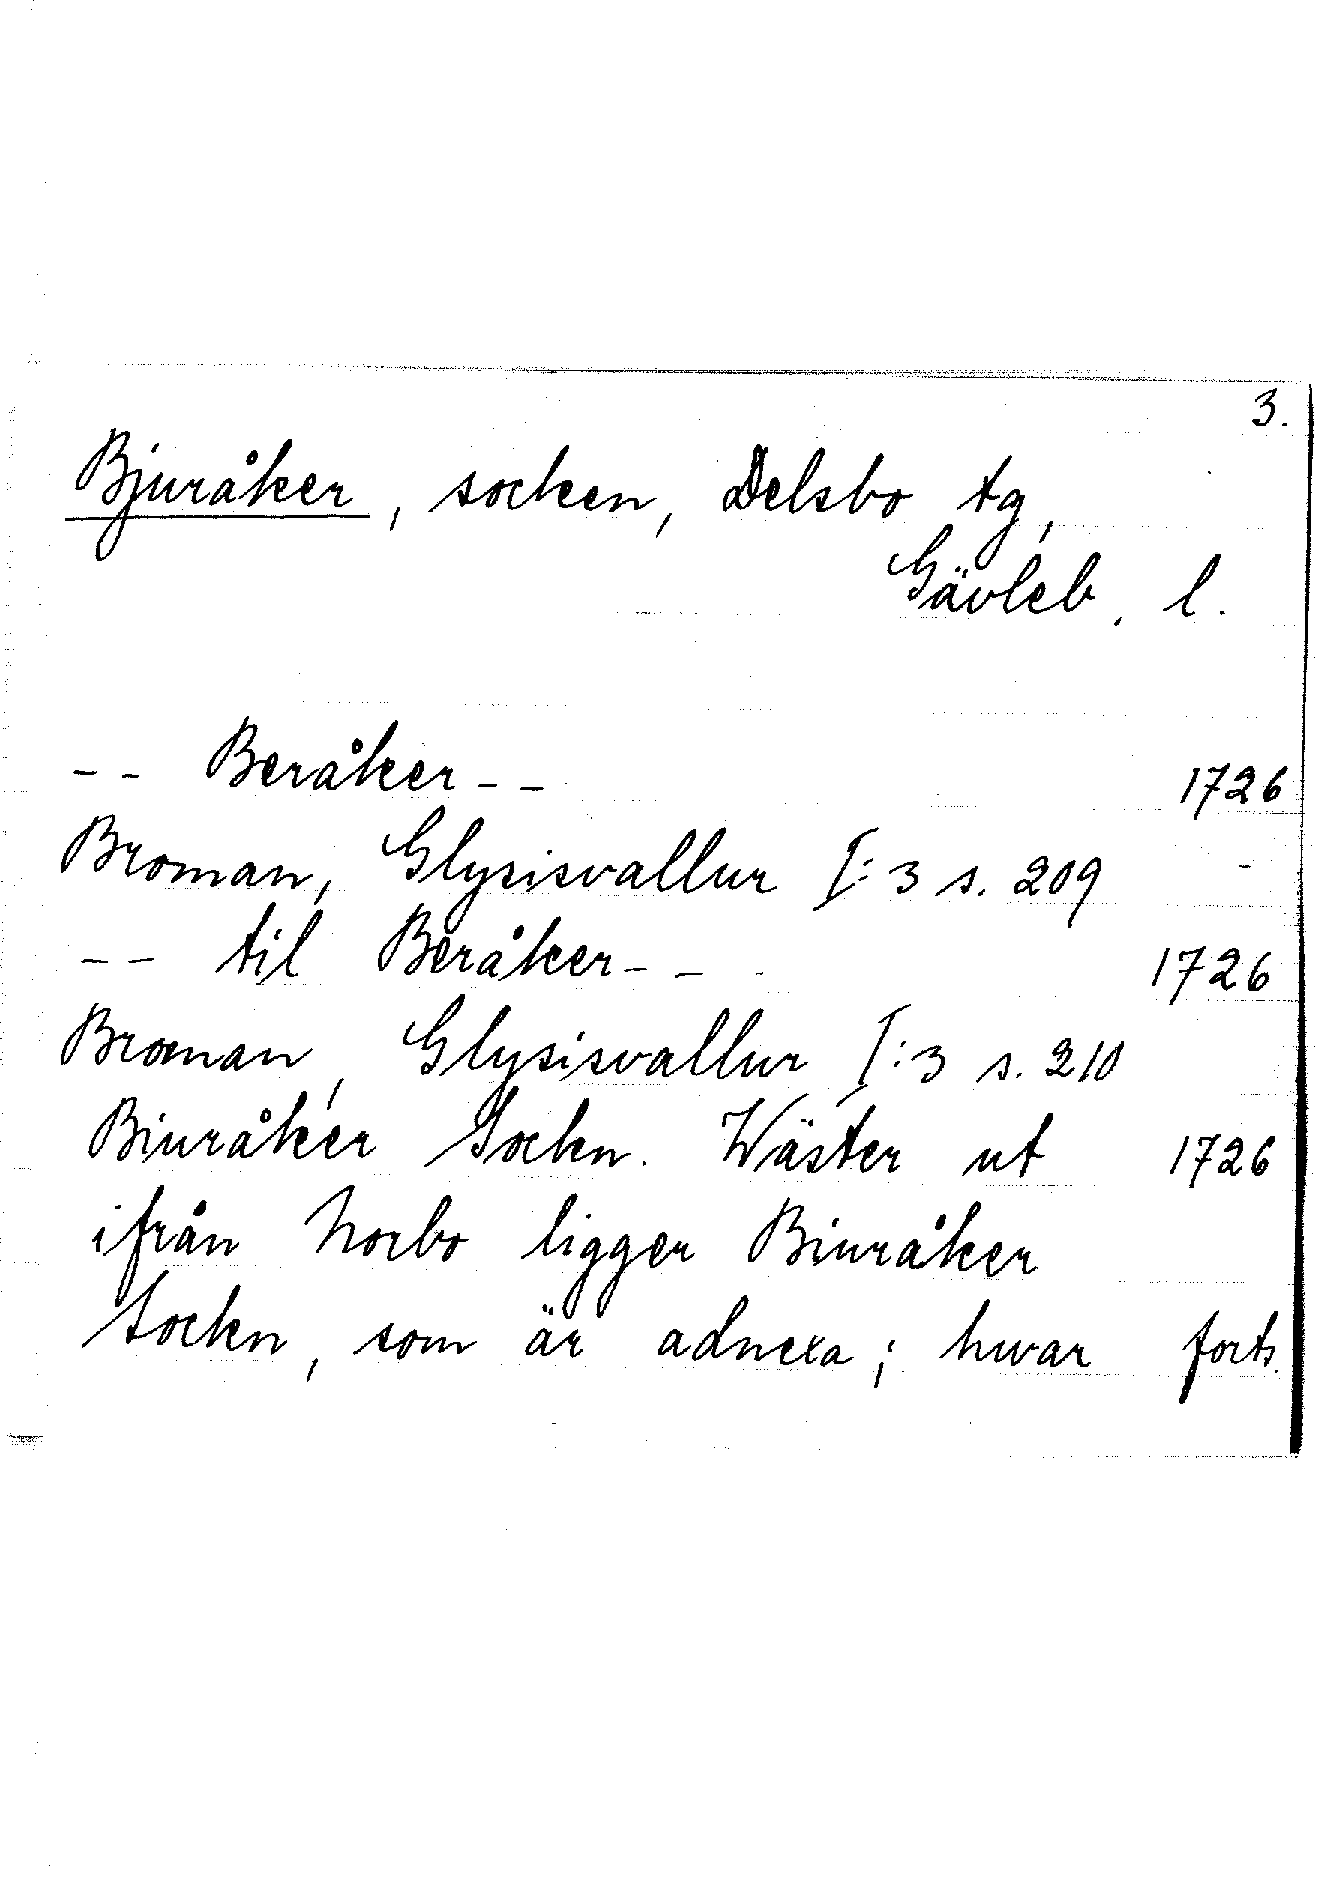 3.
Bjuråker, socken, Delsbo tg,
Gävleb. l.
-- Beråker -- 1726
Broman, Glysisvallur I:3 s. 209 -
-- til Beråker -- - 1726
Broman, Glysisvallur I:3 s. 210
Biuråker Sockn. Wäster ut 1726
ifrån Norbo ligger Biuråker
Sockn, som är adnexa; hwar forts.